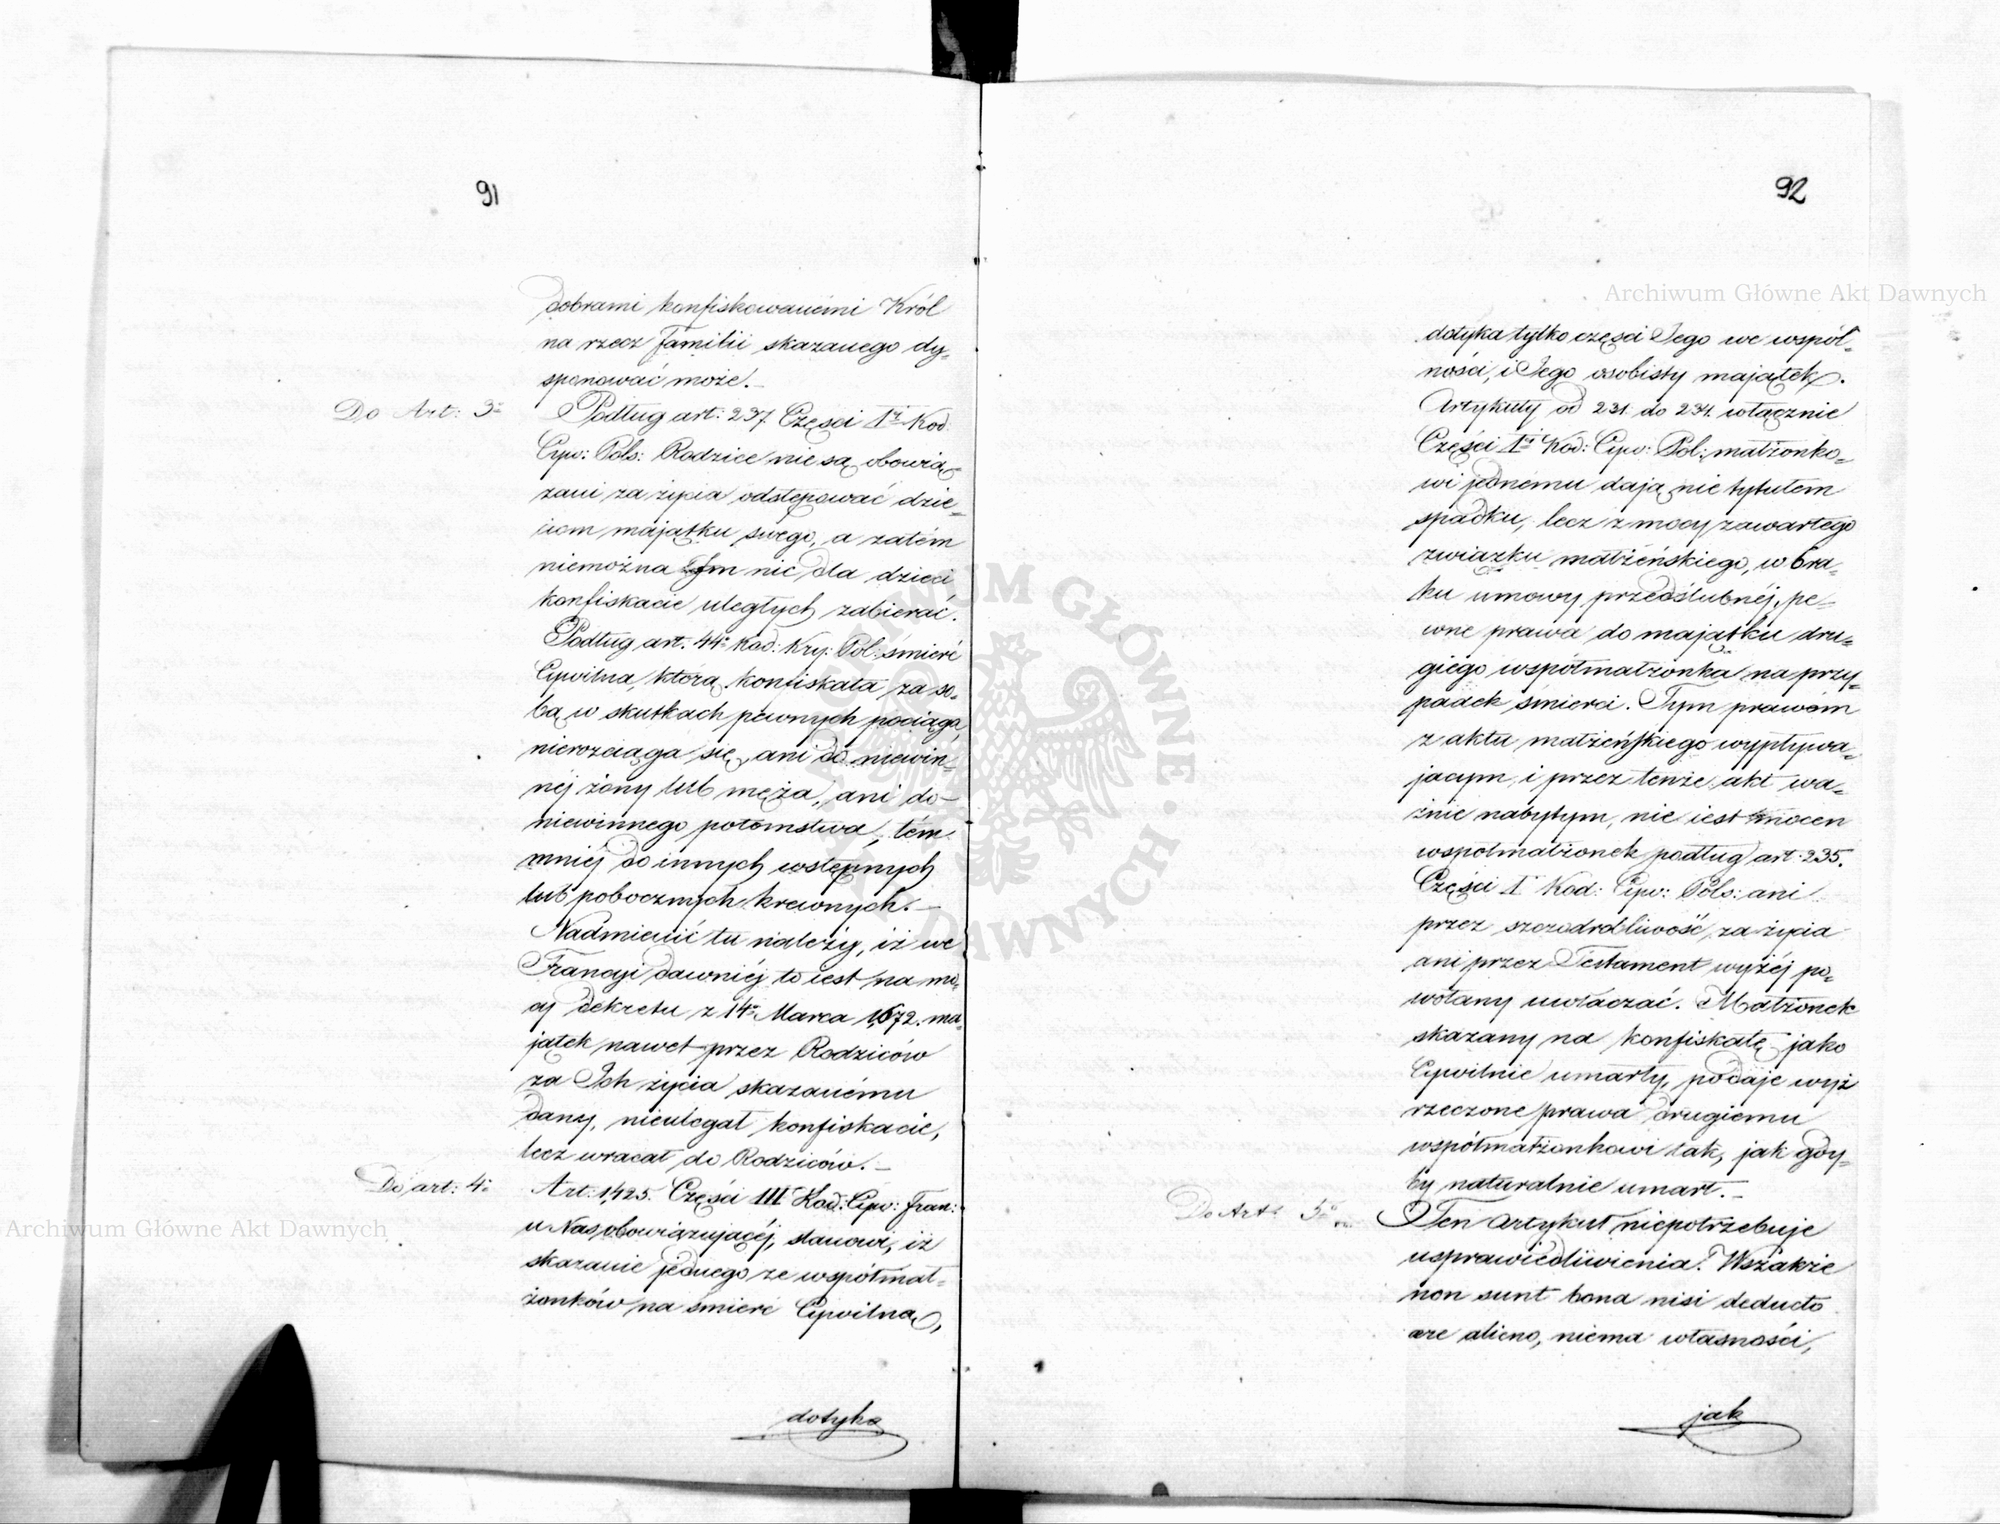 91
dobrami konfiskowanémi Król
na rzecz familii skazanego dy„
sponować może. –
Do Art: 3º
Podług art: 237. Części Iéj Kod
Cyw: Pols: Rodzice nie są obowią„
zani za życia odstępować dzie„
ciom majątku swego, a zatém
niemożna Im nic dla dzieci
konfiskacie uległych zabierać.
Podług art. 44º Kod: Kry: Pol: śmierć
Cywilna, którą konfiskata za so„
bą w skutkach pewnych pociąga,
nierozciąga się, ani do niewin„
néj żony lub męża, ani do
niewinnego potomstwa, tém
mniéj do innych wstępnych
lub pobocznych krewnych. –
Nadmienić tu należy, iż we
Francyi dawniéj to iest na mo„
cy dekretu z 14º Marca 1672. ma„
jątek nawet przez Rodziców
za Ich życia skazanému
dany, nieulegał konfiskacie,
lecz wracał do Rodziców. –
Do art: 4º
Art: 1,425. Części III Kod: Cyw: fran:
u Nas obowiązującéj, stanowi, iż
skazanie jednego ze współmał„
żonków na śmierć Cywilną,
dotyka
92
dotyka tylko części Jego we wspól„
ności, i Jego osobisty majątek.
Artykuły od 231. do 234. włącznie
Części Iéj Kod: Cyw: Pol: małżonko„
wi jednému dają nie tytułem
spadku, lecz z mocy zawartego
związku małżeńskiego, w bra„
ku umowy przedślubnéj, pe„
wne prawa do majątku dru„
giego współmałżonka na przy„
padek śmierci. Tym prawém
z aktu małżeńskiego wypływa„
jącym, i przez tenże akt wa„
żnie nabytym, nie iest mocen
wspołmałżonek podług art: 235.
Części I Kod: Cyw: Pols: ani
przez szczodrobliwość za życia
ani przez Testament wyżéj po„
wołany uwłaczać. Małżonek
skazany na konfiskatę jako
Cywilnie umarły, podaje wyż
rzeczone prawa drugiemu
współmałżonkowi tak, jak gdy„
by naturalnie umarł. –
Do Art: 5º
Ten artykuł niepotrzebuje
usprawiedliwienia. Wszakże
non sunt bona nisi deducto
aere alieno, niema własności,
jak
Archiwum Główne Akt Dawnych
Archiwum Główne Akt Dawnych
ARCHIWUM GŁÓWNE · AKT DAWNYCH ·